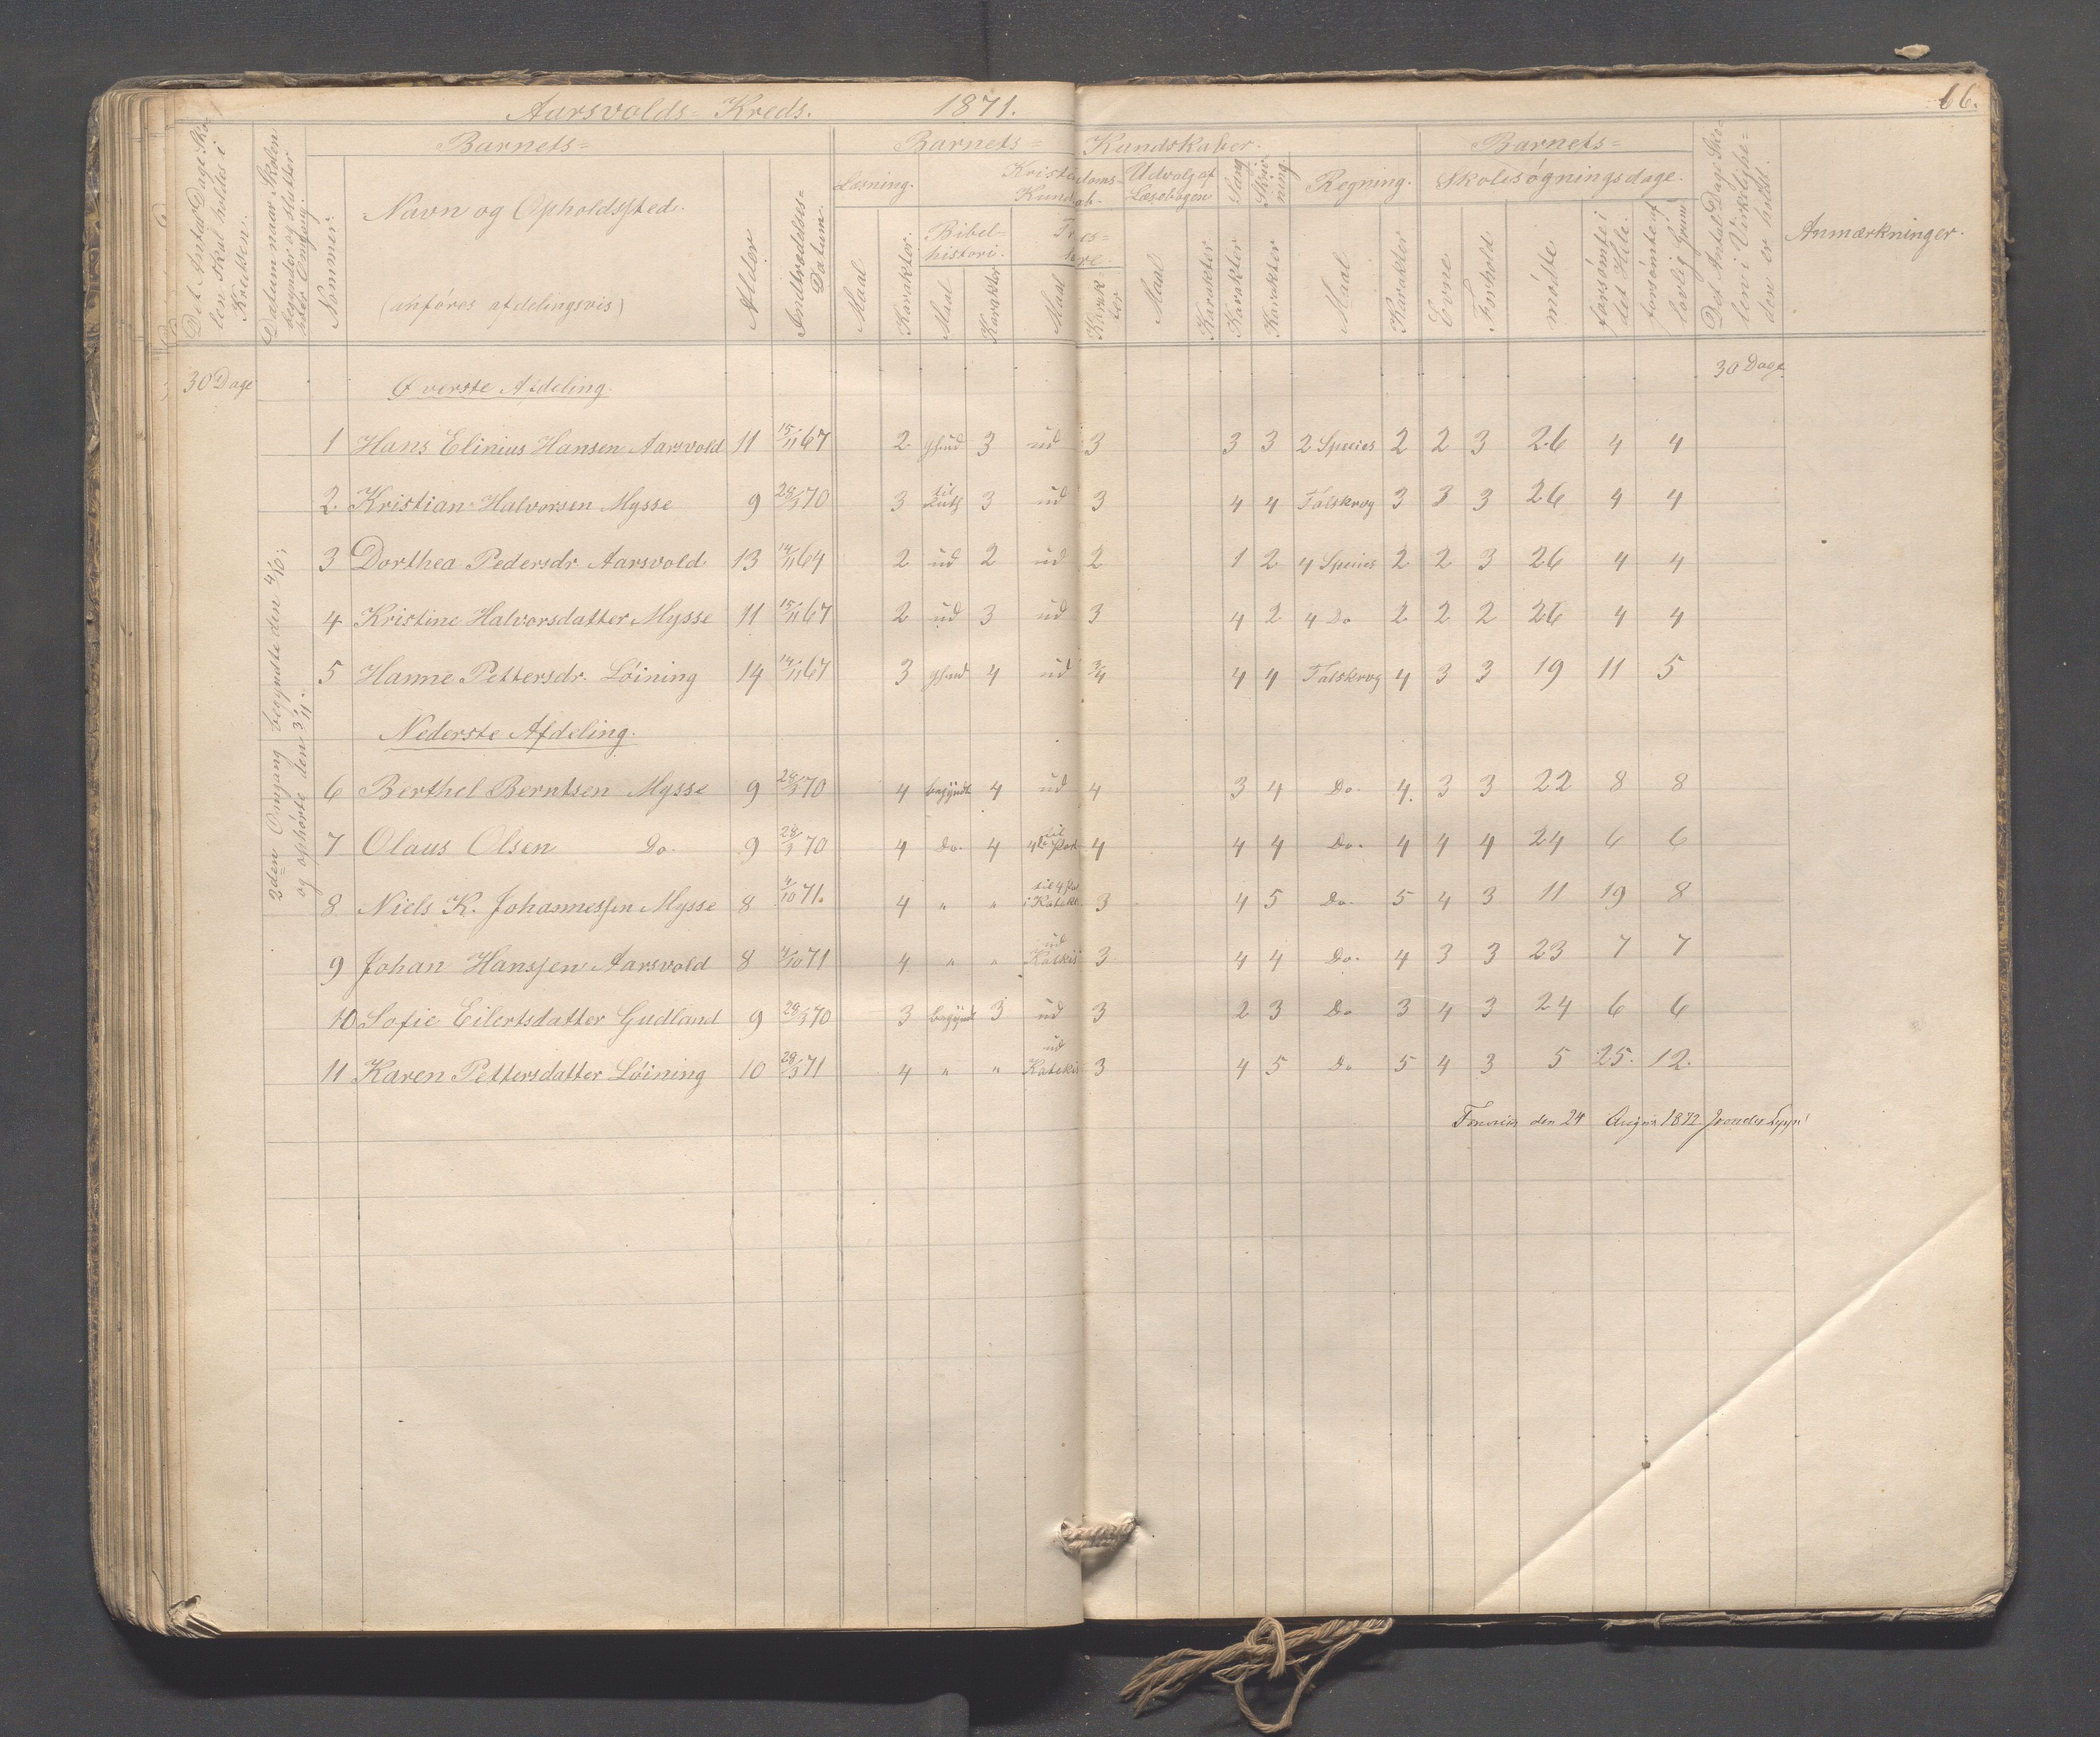 Aarsvolds= Kreds. 1871. 66.
Det Antal Dage Skolen skal holdes i Kredsen.
Datum naar Skolen begynder og slutter hver Omgang.
Nommer.
Barnets=
Navn og Opholdssted.
(anføres afdelingsvis)
Alder
Indtrædelses= Datum.
Barnets= Kundskaber.
Læsning. Maal Karakter.
Kristendoms= Kundskab.
Bibel= historie. Maal Karakter
Troes= lære. Maal Karakter
Udvalg af Læsebogen Maal Karakter
Sang Karakter
Skrivning. Karakter
Regning. Maal Karakter
Barnets=
Evne Forhold
Skolesøgningsdage.
mødte
forsømte i det Hele.
forsømte af lovlig Grund
Det Antal Dage Skolen i Virkeligheden er holdt.
Anmærkninger.
30 Dage Øverste Afdeling. 30 Dage
2den Omgang begyndte den 4/10;
og ophørte den 3/11.
1 Hans Elinius Hansen Aarsvold 11 15/11 67 2 3 ud 3 3 3 2 Species 2 2 3 26 4 4
2 Kristian Halvorsen Mysse 9 28/3 70 3 til Ruth 3 ud 3 4 4 Talskrvg 3 3 3 26 4 4
3 Dorthea Pedersdr Aarsvold 13 14/11 64 2 ud 2 ud 2 1 2 4 Species 2 2 3 26 4 4
4 Kristine Halvorsdatter Mysse 11 15/11 67 2 ud 3 ud 3 4 2 4 Do 2 2 2 26 4 4
5 Hanne Pettersdr. Løining 14 14/11 67 3 4 ud 3/4 4 4 Talskrvg 4 3 3 19 11 5
Nederste Afdeling.
6 Berthel Berntsen Mysse 9 28/3 70 4 begyndt 4 ud 4 3 4 Do. 4. 3 3 22 8 8
7 Olaus Olsen Do. 9 28/3 70 4 Do. 4 til 4de Part 4 4 4 Do. 4 4 4 24 6 6
8 Niels K. Johannessen Mysse 8 4/10 71. 4 " " til 4 Par i Katekis 3 4 5 Do. 5 4 3 11 19 8
9 Johan Hanssen Aarsvold 8 4/10 71 4 " " ud Katekis 3 4 4 Do. 4 3 3 23 7 7
10 Sofie Eilertsdatter Gudland 9 28/3 70 3 begyndt 3 ud 3 2 3 Do 3 4 3 24 6 6
11 Karen Pettersdatter Løining 10 29/3 71 4 " " ud Katekis 3 4 5 Do 5 4 3 5 25. 12.
den 24 August 1872.